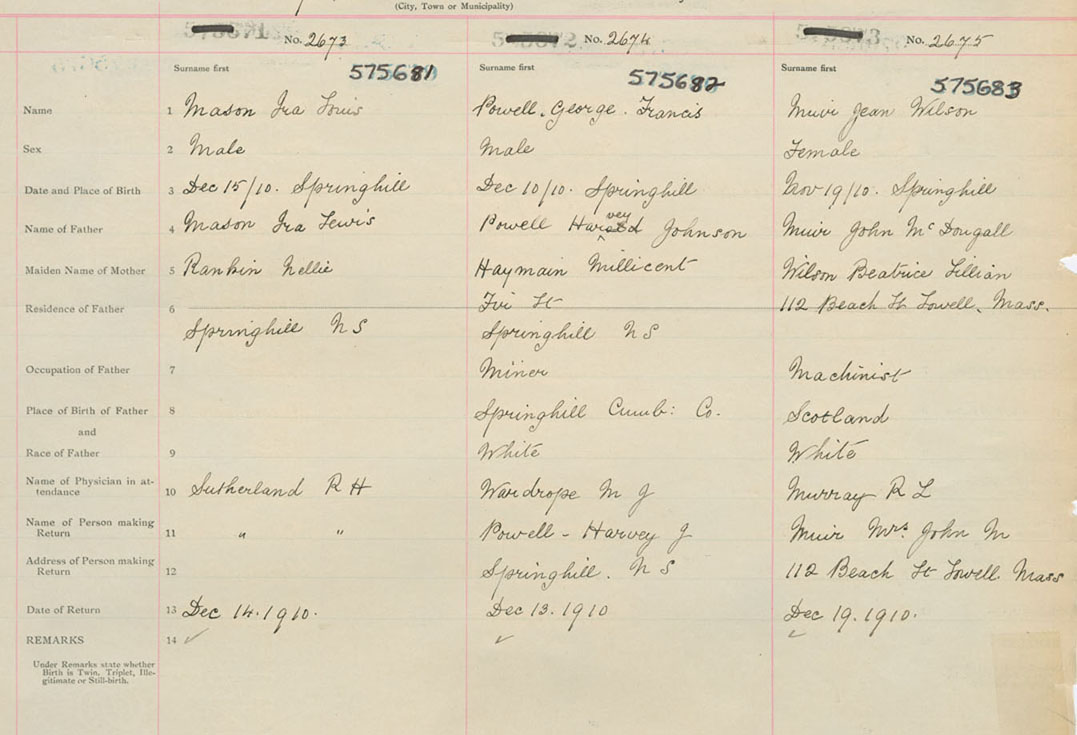 (City, Town or Municipality)
No. 2673 No. 2674 No. 2675
Surname first 575681 Surname first 575682 Surname first 575683
Name 1 Mason Ira Louis Powell. George. Francis Muir Jean Wilson
Sex 2 Male Male Female
Date and Place of Birth 3 Dec 15/10. Springhill Dec 10/10. Springhill Nov 19/10. Springhill
vey
Name of Father 4 Mason Ira Lewis Powell Harold Johnson Muir John Mc Dougall
Maiden Name of Mother 5 Rankin Nellie Haymain Millicent Wilson Beatrice Lillian
Residence of Father 6 St 112 Beach St Lowell. Mass.
Springhill N S Springhill N S
Occupation of Father 7 Miner Machinist
Place of Birth of Father 8 Springhill Cumb: Co. Scotland
and
Race of Father 9 White White
Name of Physician in at-
tendance 10 Sutherland R H Wardrope M J Murray R L
Name of Person making
Return 11 " " Powell - Harvey J Muir Mrs. John M
Address of Person making
Return 12 Springhill. N S 112 Beach St Lowell Mass
Date of Return 13 Dec 14. 1910. Dec 13. 1910 Dec 19. 1910.
REMARKS 14 ✓ ✓ ✓
Under Remarks state whether
Birth is Twin, Triplet, Ille-
gitimate or Still-birth.